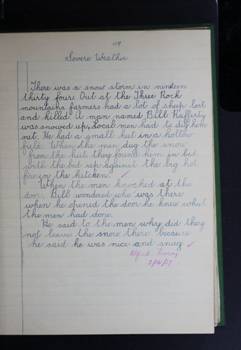 Severe Weather
There was a snow storm in nineteen
thirty four. Out at the Three Rock
mountains farmers had a lot of sheep lost
and killed. A man named Bill Rafferty
was snowed up, local men had to dig him
out. He had a small hut in a hollow
field. When the men dug the snow
from the hut they found him in bed
with the but up against the big hot
fire in the kitchen.
When the men knocked at the
door Bill wondered who was there
when he opened the door he knew what
the men had done.
He said to the men why did they
not leave the snow there because
he said he was nice and snug